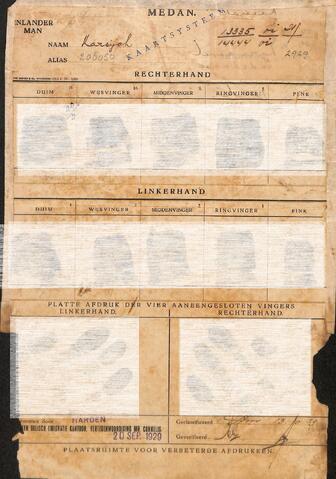 MEDAN.
KAARTSYSTEEM
INLANDER
MAN
13335
14444
NAAM Karijoh
ALIAS
2929
RECHTERHAND
DUIM WIJSVINGER MIDDENVINGER RINGVINGER PINK
LINKERHAND
DUIM WIJSVINGER MIDDENVINGER RINGVINGER PINK
PLATTE AFDRUK DER VIER AANEENGESLOTEN VINGERS
LINKERHAND. RECHTERHAND.
door HARDEN
EMIGRATIE KANTOOR, VERTEGENWOORDIGING MR. CORNELIS
20 SEP. 1929
Geclassificeerd
Geverifieerd
PLAATSRUIMTE VOOR VERBETERDE AFDRUKKEN.